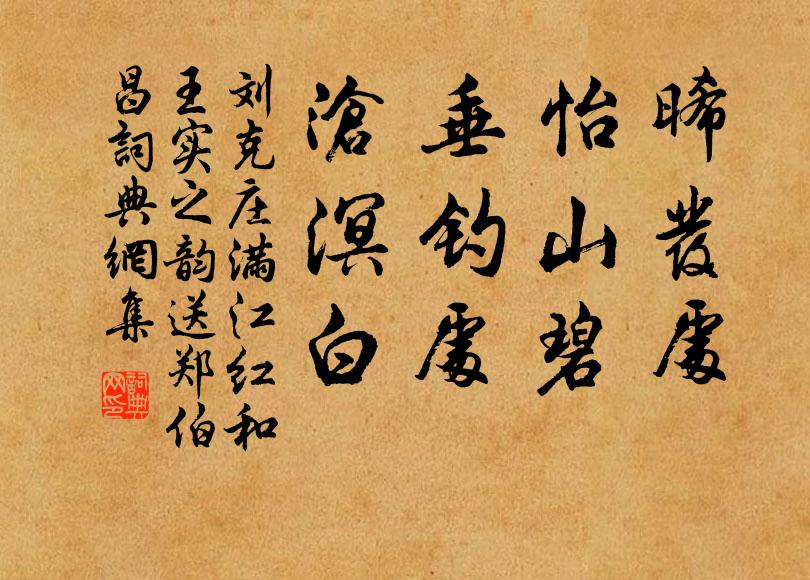 晞發處
怡山碧
垂钓處
滄溟白
刘克庄满江红和
王实之韵送郑伯
昌詞典網集
詞典
网印